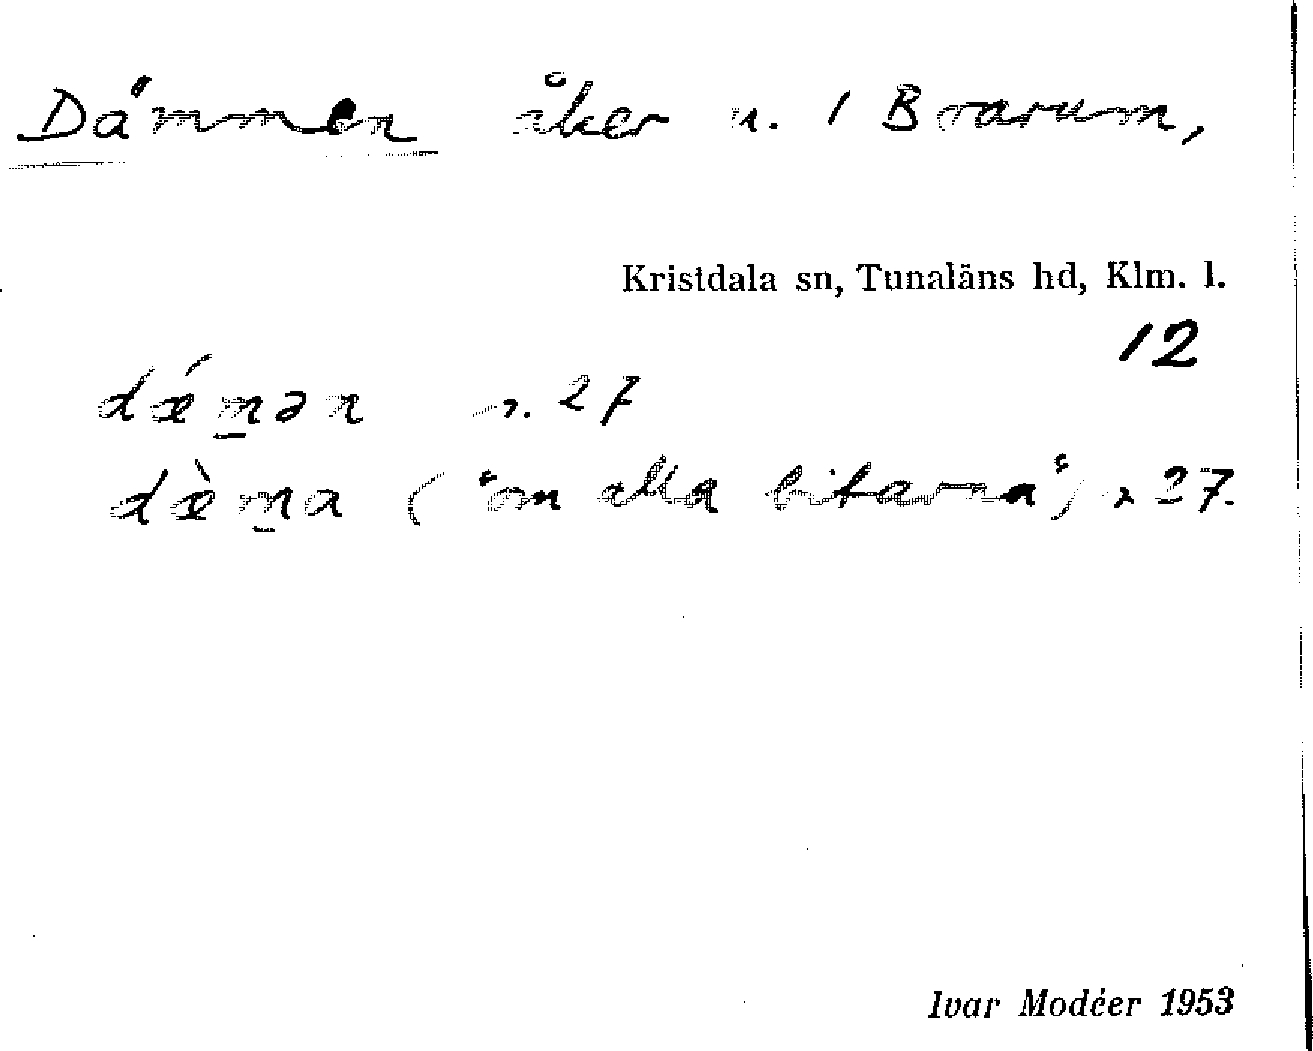 Dämmen åker n. 1 Brarum,
Kristdala sn, Tunaläns hd, Klm. l.
12
dǽm̲ən n. 27
dæ̀m̲a ("om alla bitarna") n 27.
Ivar Modéer 1953